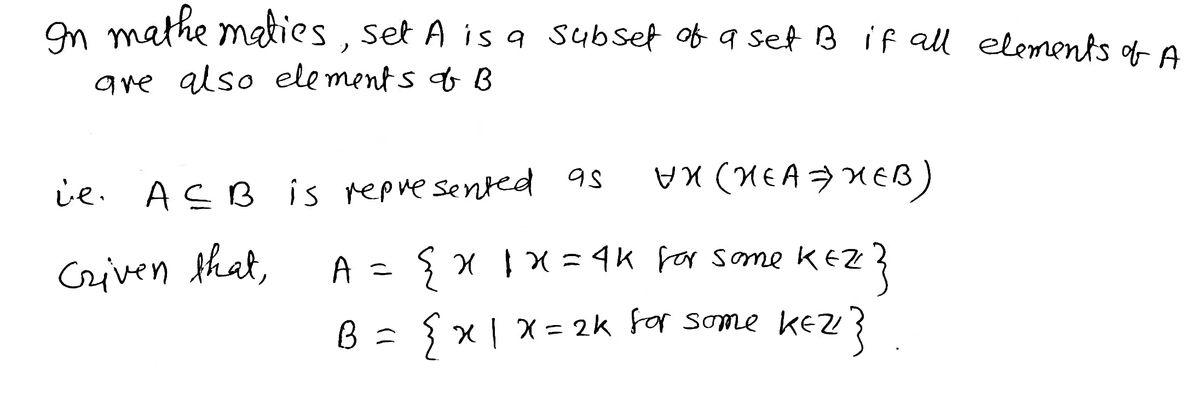 In mathematics, set A is a subset of a set B if all elements of A
are also elements of B
i.e. A ⊆ B is represented as ∀x (x∈A ⇒ x∈B)
Given that, A = { x | x = 4k for some k∈ℤ }
B = { x | x = 2k for some k∈ℤ } .